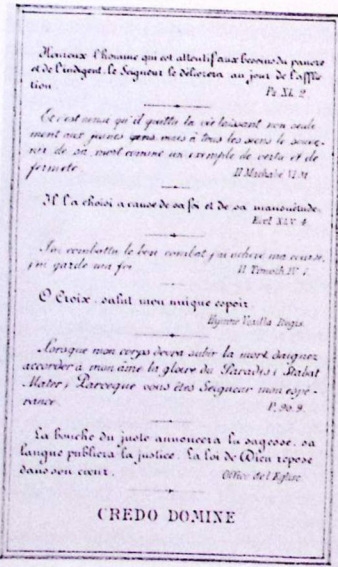 Heureux l'homme qui est attentif aux besoins du pauvre
et de l'indigent, le Seigneur le délivrera au jour de l'afflic
tion.
Ps XL. 2
Et c'est ainsi qu'il quitta la vie laissant non seule
ment aux jeunes gens, mais à tous les siens le souve
nir de sa mort comme un exemple de vertu et de
fermeté.
II Machabé VI. 31
Il l'a choisi a cause de sa foi et de sa mansuétude.
Eccl. XLV. 4
J'ai combattu le bon combat j'ai achevé ma course,
j'ai gardé ma foi
II Timoth. IV
O Croix, salut mon unique espoir.
Hymne Vexilla Regis
Lorsque mon corps devra subir la mort daignez
accorder à mon âme la gloire du Paradis (Stabat
Mater) Parceque vous êtes Seigneur mon espé
rance.
P. 90. 9.
La bouche du juste annoncera la sagesse, sa
langue publiera la justice. La loi de Dieu repose
dans son cœur.
Office de l'Eglise
CREDO DOMINE